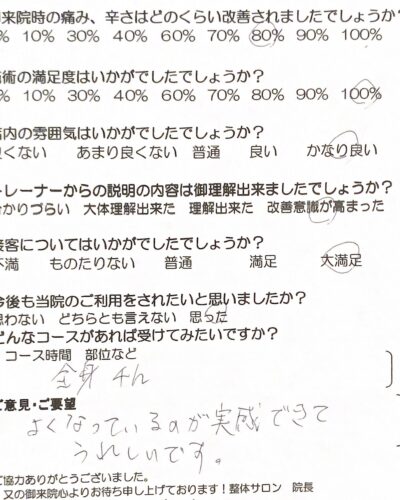 来院時の痛み、辛さはどのくらい改善されましたでしょうか?
% 10% 30% 40% 60% 70% 80% 90% 100%
術の満足度はいかがでしたでしょうか?
% 10% 30% 40% 60% 70% 80% 90% 100%
内の雰囲気はいかがでしたでしょうか?
良くない あまり良くない 普通 良い かなり良い
トレーナーからの説明の内容は御理解出来ましたでしょうか?
分かりづらい 大体理解出来た 理解出来た 改善意識が高まった
接客についてはいかがでしたでしょうか?
不満 ものたりない 普通 満足 大満足
今後も当院のご利用をされたいと思いましたか?
思わない どちらとも言えない 思った
どんなコースがあれば受けてみたいですか?
コース時間 部位など
全身
ご意見・ご要望
よくなっているのが実感できて
うれしいです。
ご協力ありがとうございました。
又の御来院心よりお待ち申し上げております!整体サロン 院長